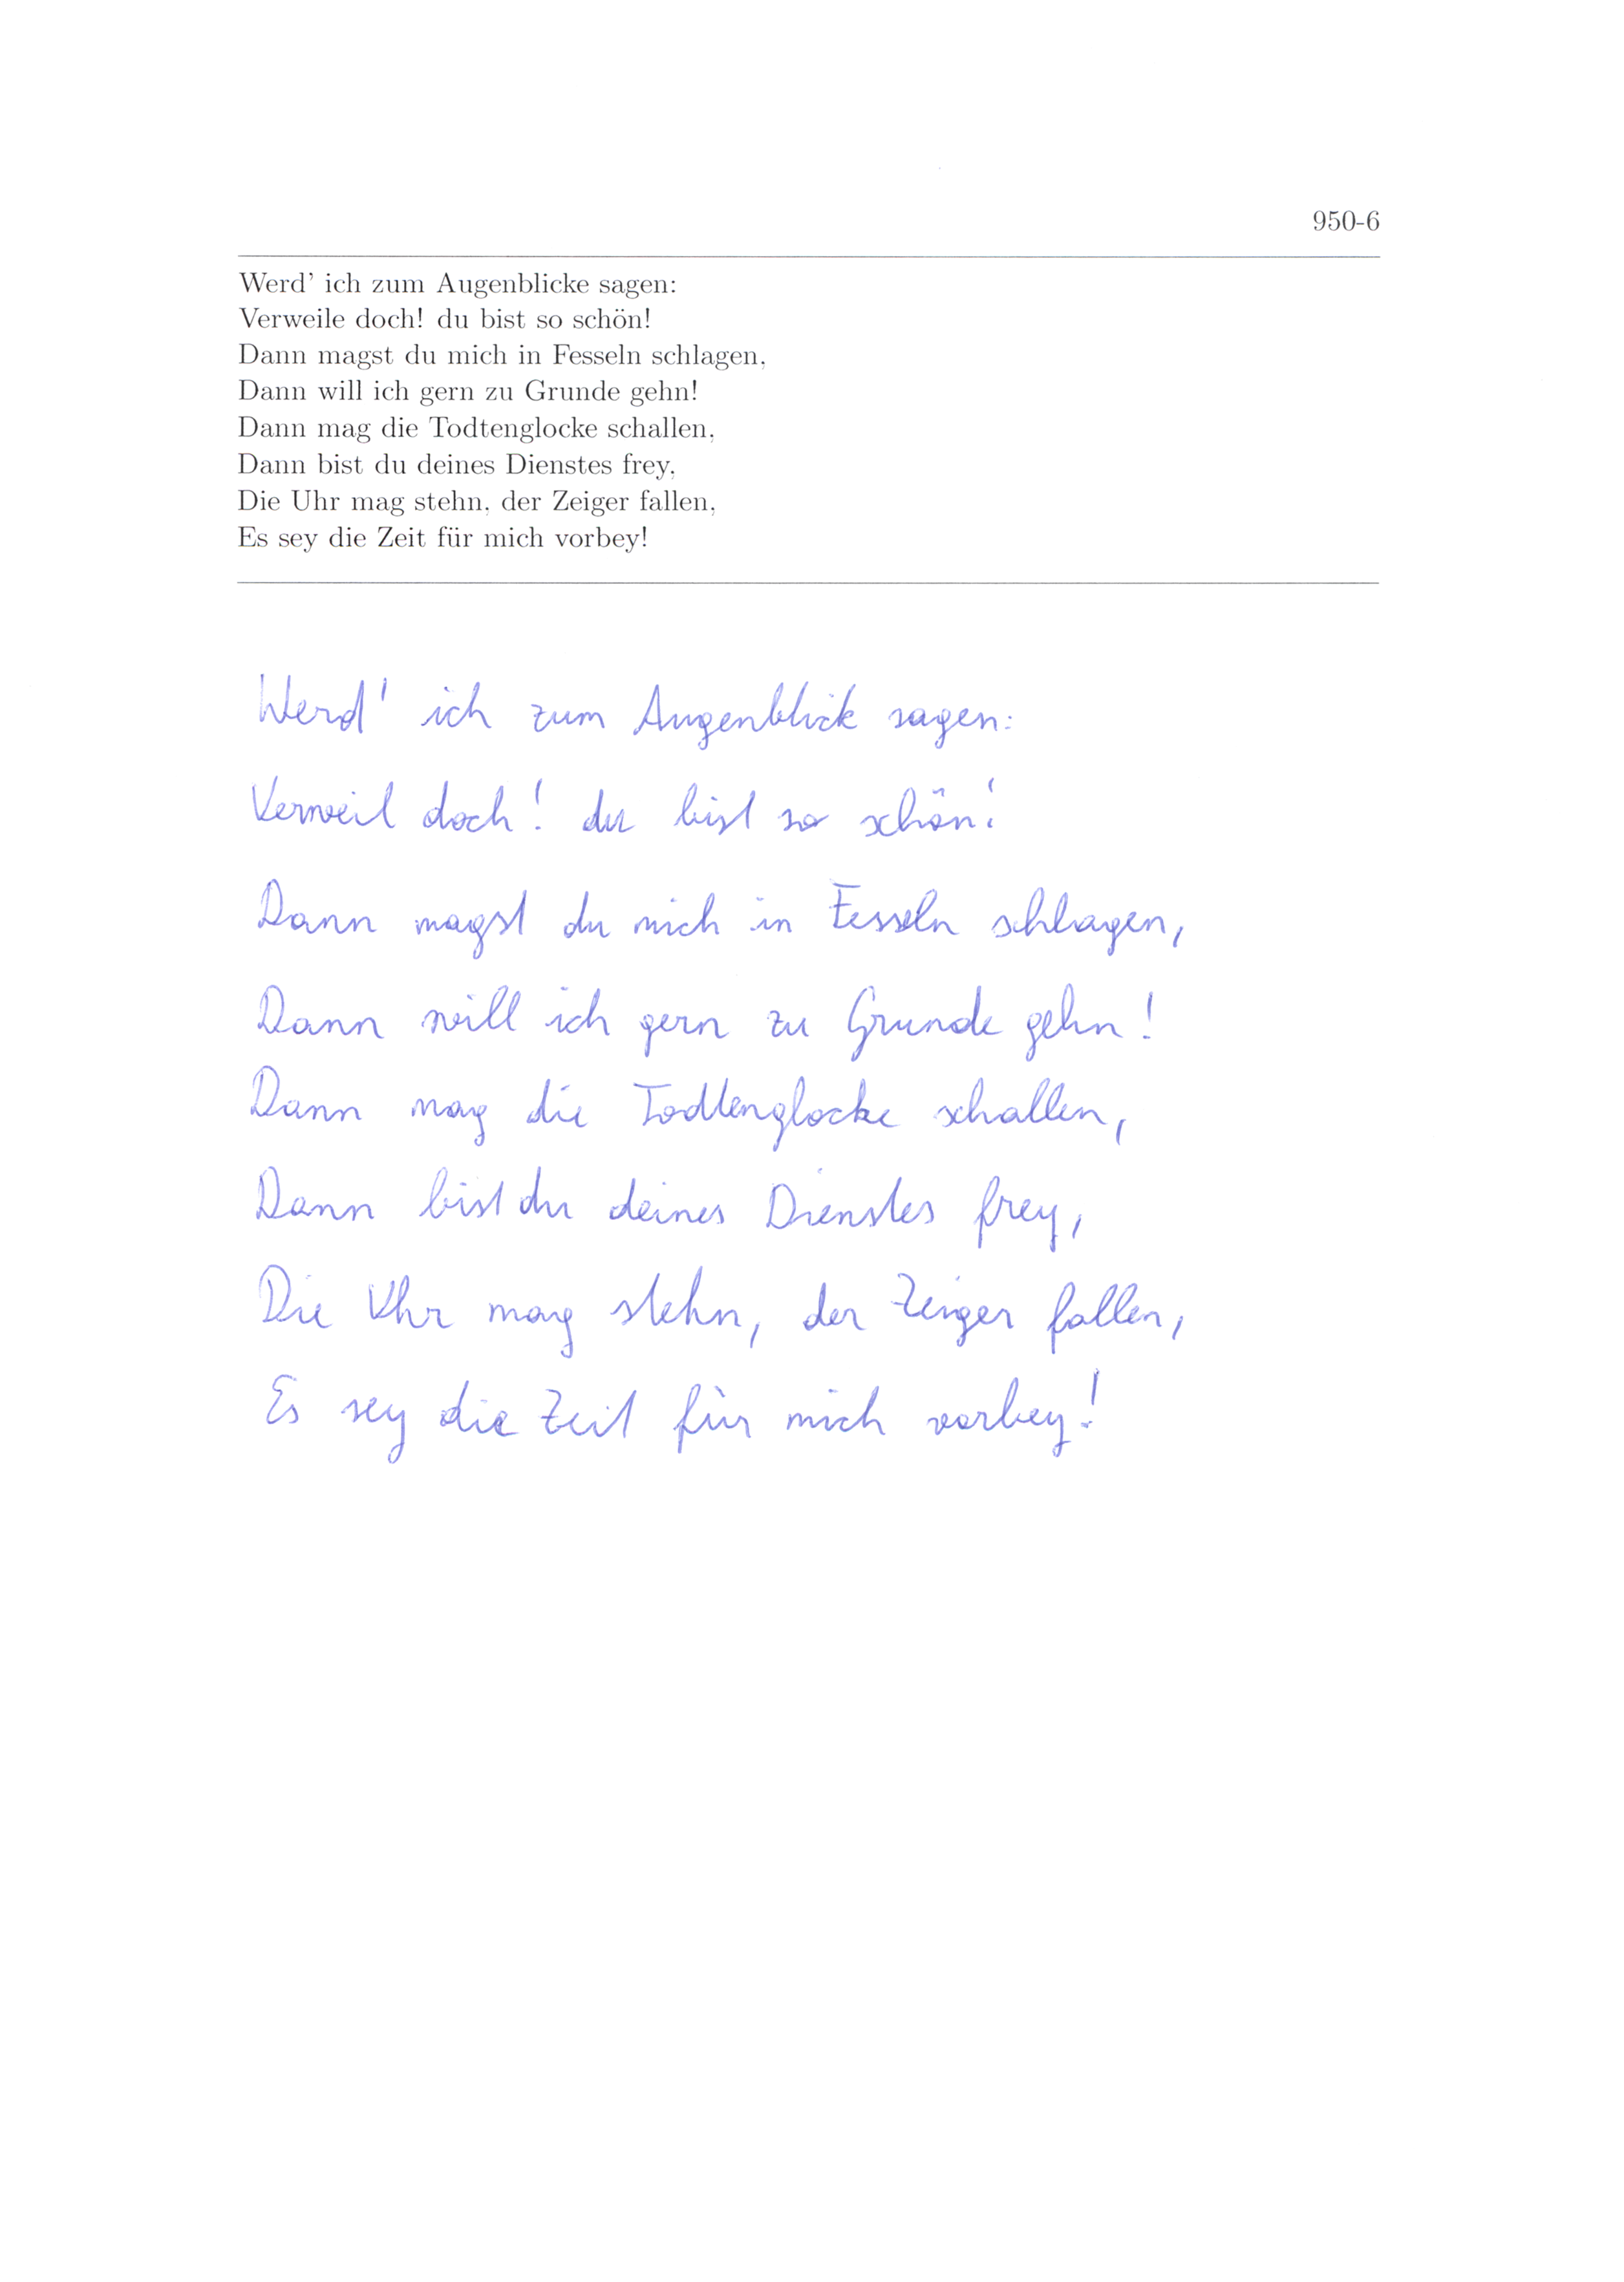 950-6
Werd' ich zum Augenblicke sagen:
Verweile doch! du bist so schön!
Dann magst du mich in Fesseln schlagen,
Dann will ich gern zu Grunde gehn!
Dann mag die Todtenglocke schallen,
Dann bist du deines Dienstes frey,
Die Uhr mag stehn, der Zeiger fallen,
Es sey die Zeit für mich vorbey!
Werd' ich zum Augenblick sagen:
Verweil doch! du bist so schön!
Dann magst du mich in Fesseln schlagen,
Dann will ich gern zu Grunde gehn!
Dann mag die Todtenglocke schallen,
Dann bist du deines Dienstes frey,
Die Uhr mag stehn, der Zeiger fallen,
Es sey die Zeit für mich vorbey!